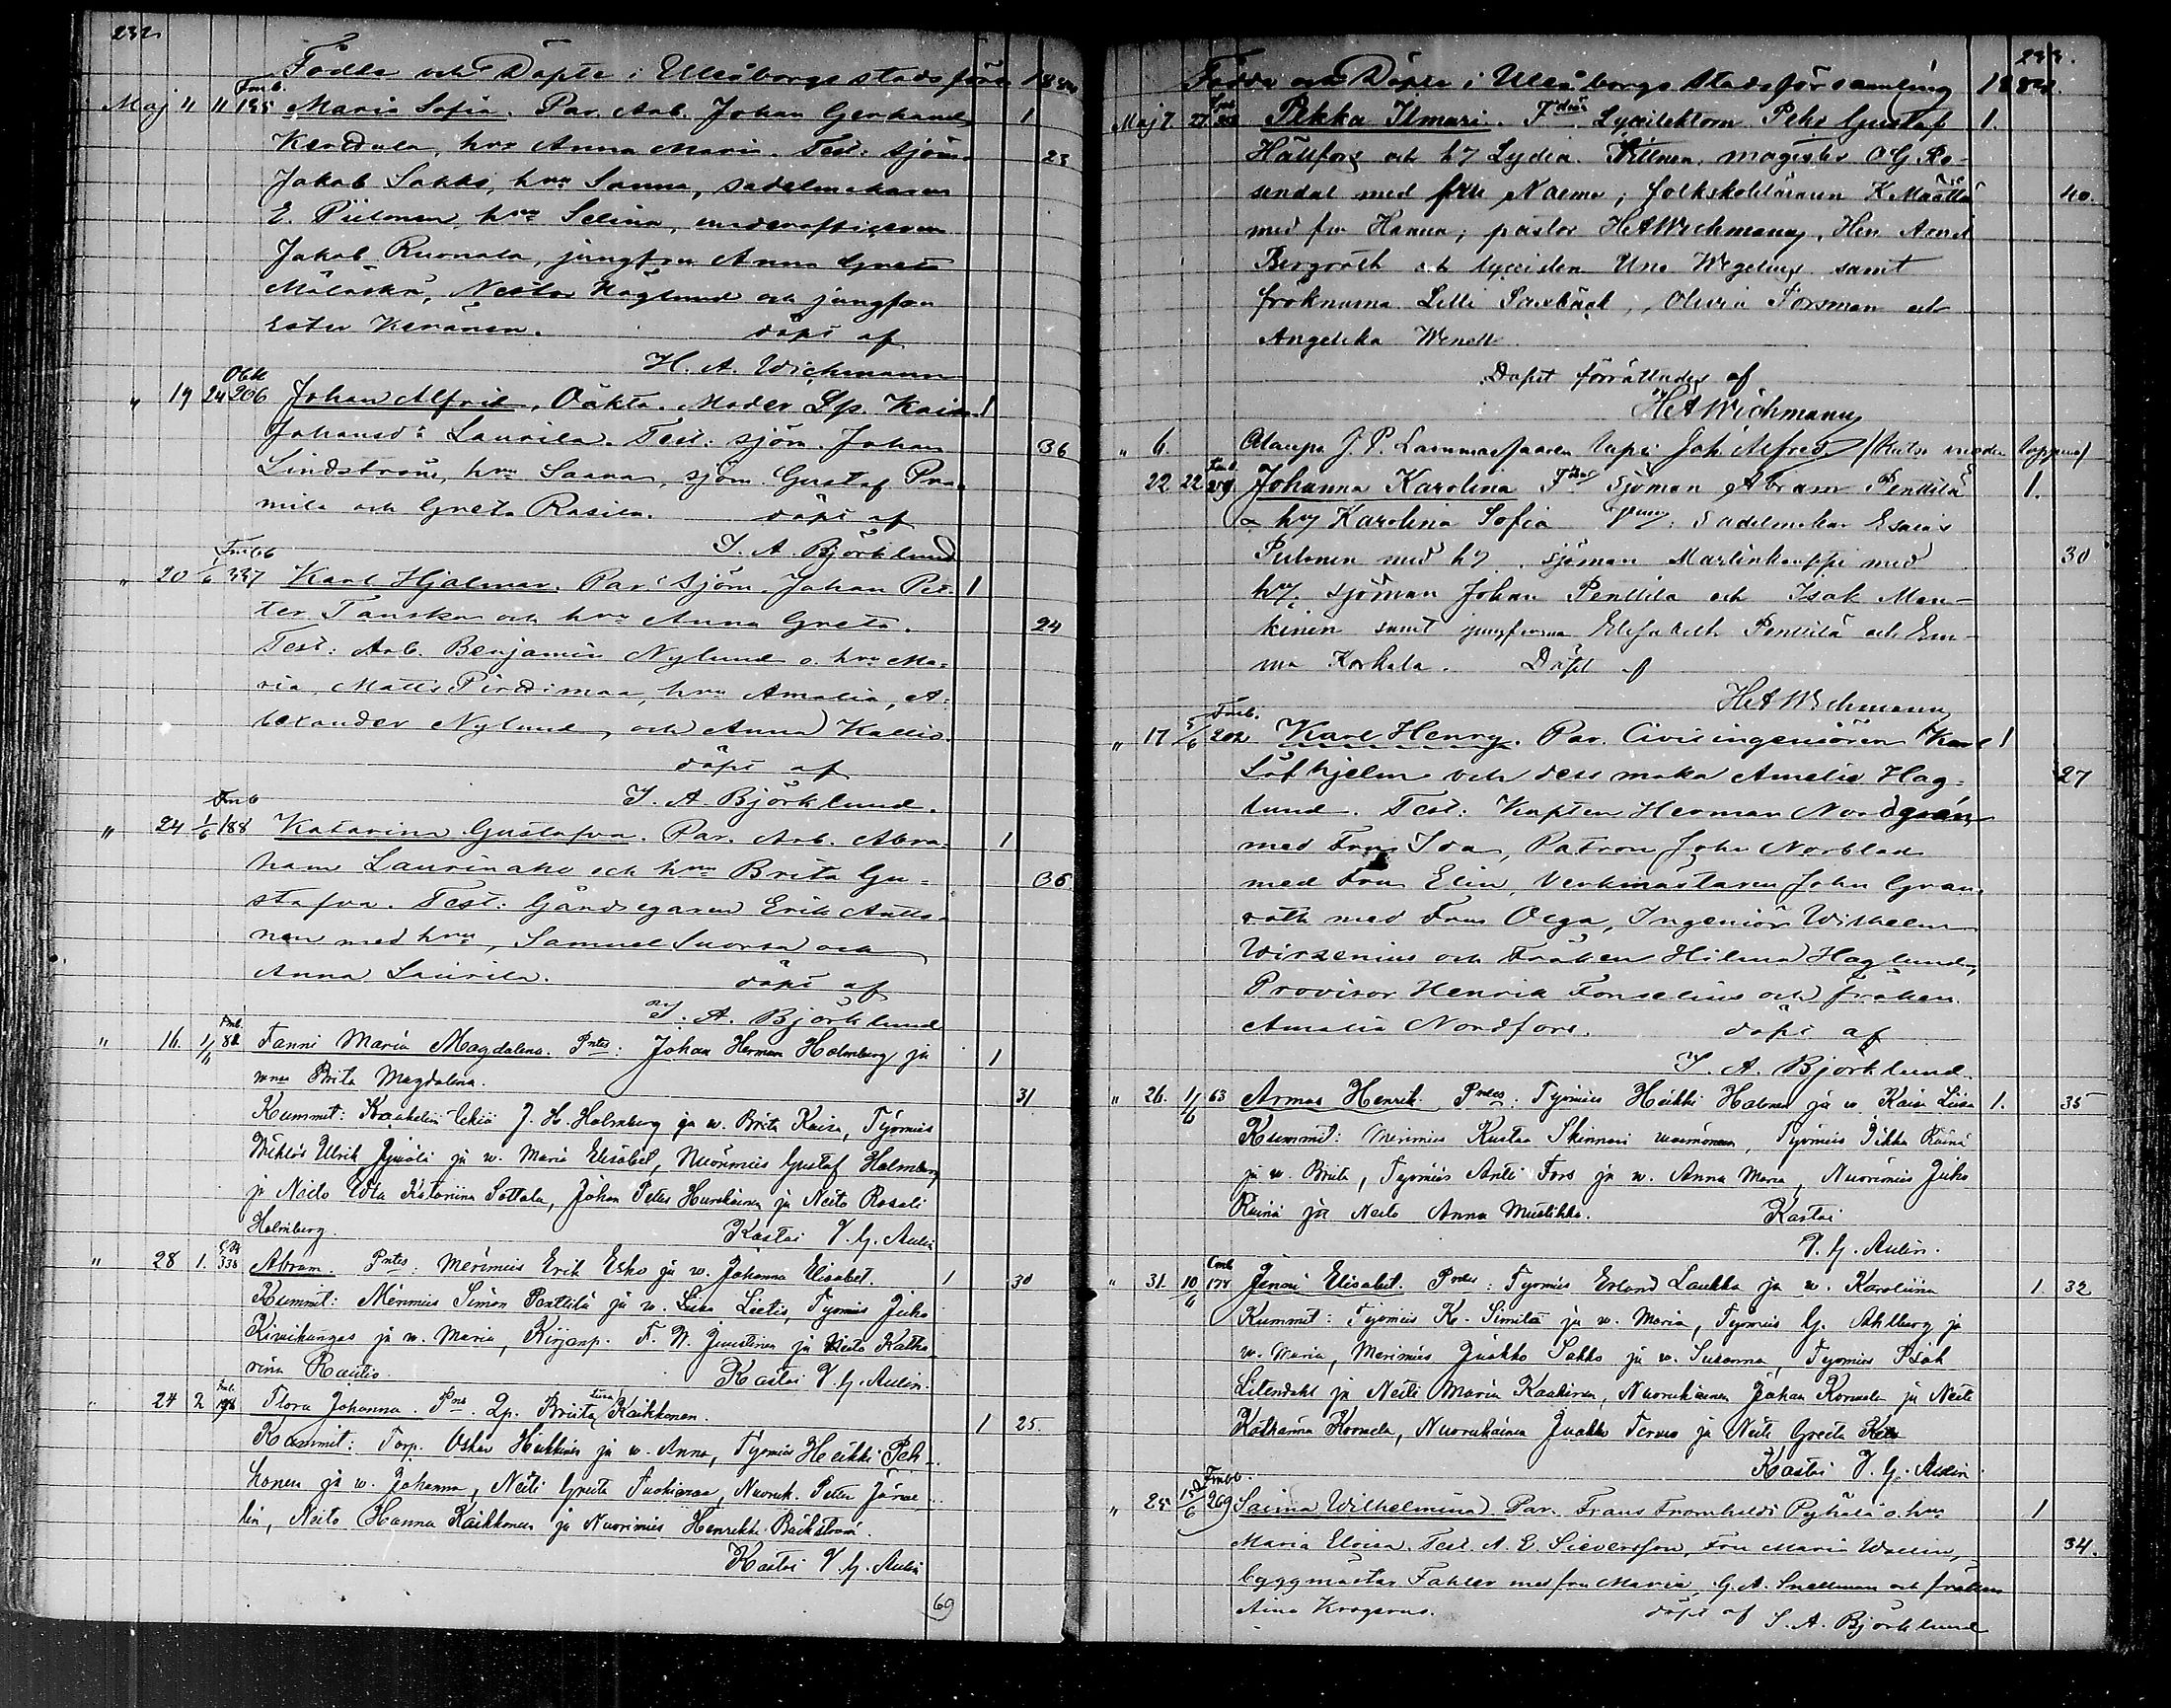 232
Födda och Döpta i Uleåborgs stads förs 1884
Fmb.
Maj 11 11 195 Maria Sofia. Par. Arb. Johan Gerhard 1
hru Anna Maria. Test: sjöm. 23
Jakob Sakko, hru Sanna, sadelmakaren
E. Piilonen, hru Selina, underofficeren
Jakob Ruonala, jungfru Anna Greta
Määttä, Nestor Haglund och jungfru
Ester Keränen. döpt af
H. A. Wichmann
" 19 24 206 Johan Alfrid, Oäkta. Moder Lp. Kaisa 1
Johansdr Laurila. Test: sjöm. Johan 36
Lindström, hru Sanna, sjöm. Gustaf
och Greta Rasila. döpt af
I. A. Björklund
Fmbb
" 20 1/6 337 Karl Hjalmar. Par: sjöm. Johan Pet- 1
ter Tanska och hru Anna Greta. 24
Test: Arb. Benjamin Nylund o. hru Ma-
ria, Matts Pirdimaa, hru Amalia, A-
lexander Nylund, och Anna Kallio.
döpt af
I. A. Björklund.
Fmb
" 24 1/6 188 Katarina Gustafva. Par. Arb. Abra- 1
ham Laurinaho och hru Brita Gu- 36
stafva. Test: Gårdsegaren Erik Antto-
nen med hru, Samuel Suorsa och
Anna Laurila. döpt af
I. A. Björklund
Fmb.
" 16. 1/6 82 Fanni Maria Magdalena. Pntes: Johan Herman Holmberg ja 1
vmo Brita Magdalena. 31.
Kummit: J. H. Holmberg ja w. Brita Kaisa, Työmies
Ulrik ja w. Maria Elisabet, Nuorimies Gustaf Holmberg
ja Neito Katariina Sottala, Johan Peter Hurskainen ja Neito Rosali
Holmberg. Kastoi V. G. Aulin
" 28 1. 338 Abram. Pntes: Merimies Erik Esko ja w. Johanna Elisabet. 1 30
Kummit: Merimies Simon Penttilä ja w. Liisa Lietis, Työmies Juho
Kivikangas ja w. Maria, Kirjanp. F. W. Juustinen ja Neito Katha-
rina Rautio. Kastoi V. G. Aulin.
" 24 2 198 Flora Johanna. Pns. Lp. Briita Liisa Kaikkonen. 1 25.
Kummit: Torp. Oskar Heikkinen ja w. Anna, Työmies Heikki Pek-
konen ja w. Johanna, Neiti Greeta, Nuoruk. Petter Järve-
lin, Neito Hanna Kaikkonen ja Nuorimies Henrikki Bäckström.
Kastoi V. G. Aulin
69
233.
Födda och Döpta i Uleåborgs stadsförsamling 1884.
Maj 7 27 Pekka Ilmari. Fdrar Lycéilektorn Pehr Gustaf 1.
Hällfors och h Lydia. Vittnen: magister O G Ro-
sendal med fru Naema; folkskoleläraren K. Määttä 40.
med fru Hanna; pastor H A Wichmann, Herr Axel
Bergroth och lyceisten Uno Wegelius samt
fröknarna Lilli Saxbäck, Olivia Forsman och
Angelika Wenell
Dopet förrättades af
H A Wichmann
" 6. J. P. Lammassaaren lapsi Joh. Alfred.
22 22 Johanna Karolina Fdrar Sjöman Abram Penttilä 1.
& h Karolina Sofia. Vnen: Sadelmakar Esaias
Piilonen med h. sjöman Martinkauppi med 30
h, sjöman Johan Penttilä och Isak Man-
kinen samt jungfrurna Elisabeth Penttilä och Em-
ma Korkala. Döpt af
H A Wichmann
Fmb.
" 17 5/6 202 Karl Henry. Par. Civilingeniören Karl 1
Löfhjelm och dess maka Amelie Hag- 27
lund. Test: Kapten Herman Nordgrén
med Fru Ida, Patron John Norblad
med Fru Elin, Verkmästaren John Gran-
roth med Fru Olga, Ingeniör Wilhelm
Wirzenius och Fröken Hilma Haglund,
Provisor Henrik Fonselius och fröken
Amalia Nordfors. döpt af
I. A. Björklund.
" 26. 1/6 63 Armas Henrik. Pntes: Työmies Heikki Halonen ja w. Kaisa Liisa 1. 35
Kummit: Merimies Kustaa Skinnari vaimoneen, Työmies Pekka Räinä
ja w. Brita, Työmies Antti Fors ja w. Anna Maria, Nuorimies Juho
Räinä ja Neito Anna Mustikka. Kastoi
V. G. Aulin.
" 31. 10/6 178 Jenni Elisabet. Pntes: Työmies Erland Laukka ja w. Karoliina 1. 32
Kummit: Työmies K. Simila ja w. Maria, Työmies G. Ahlberg ja
w. Maria, Merimies Jaakko Sakko ja w. Susanna, Työmies Isak
Litendahl ja Neiti Maria Kaakinen, Nuorukainen Johan Kormela ja Neiti
Katharina Kormela, Nuorukainen Jaakko Tervo ja Neiti Greeta
Kastoi V. G. Aulin
Fmbb.
" 25 15/6 269 Saima Wilhelmina. Par. Frans Fromholdt Pyhälä o. hru 1
Maria Elvira. Test. A. E. Sieversson, Fru Maria Wallin, 34.
byggmästar Fahler med fru Maria, G. A. Snellman och fröken
Aina Krogerus. döpt af I. A. Björklund